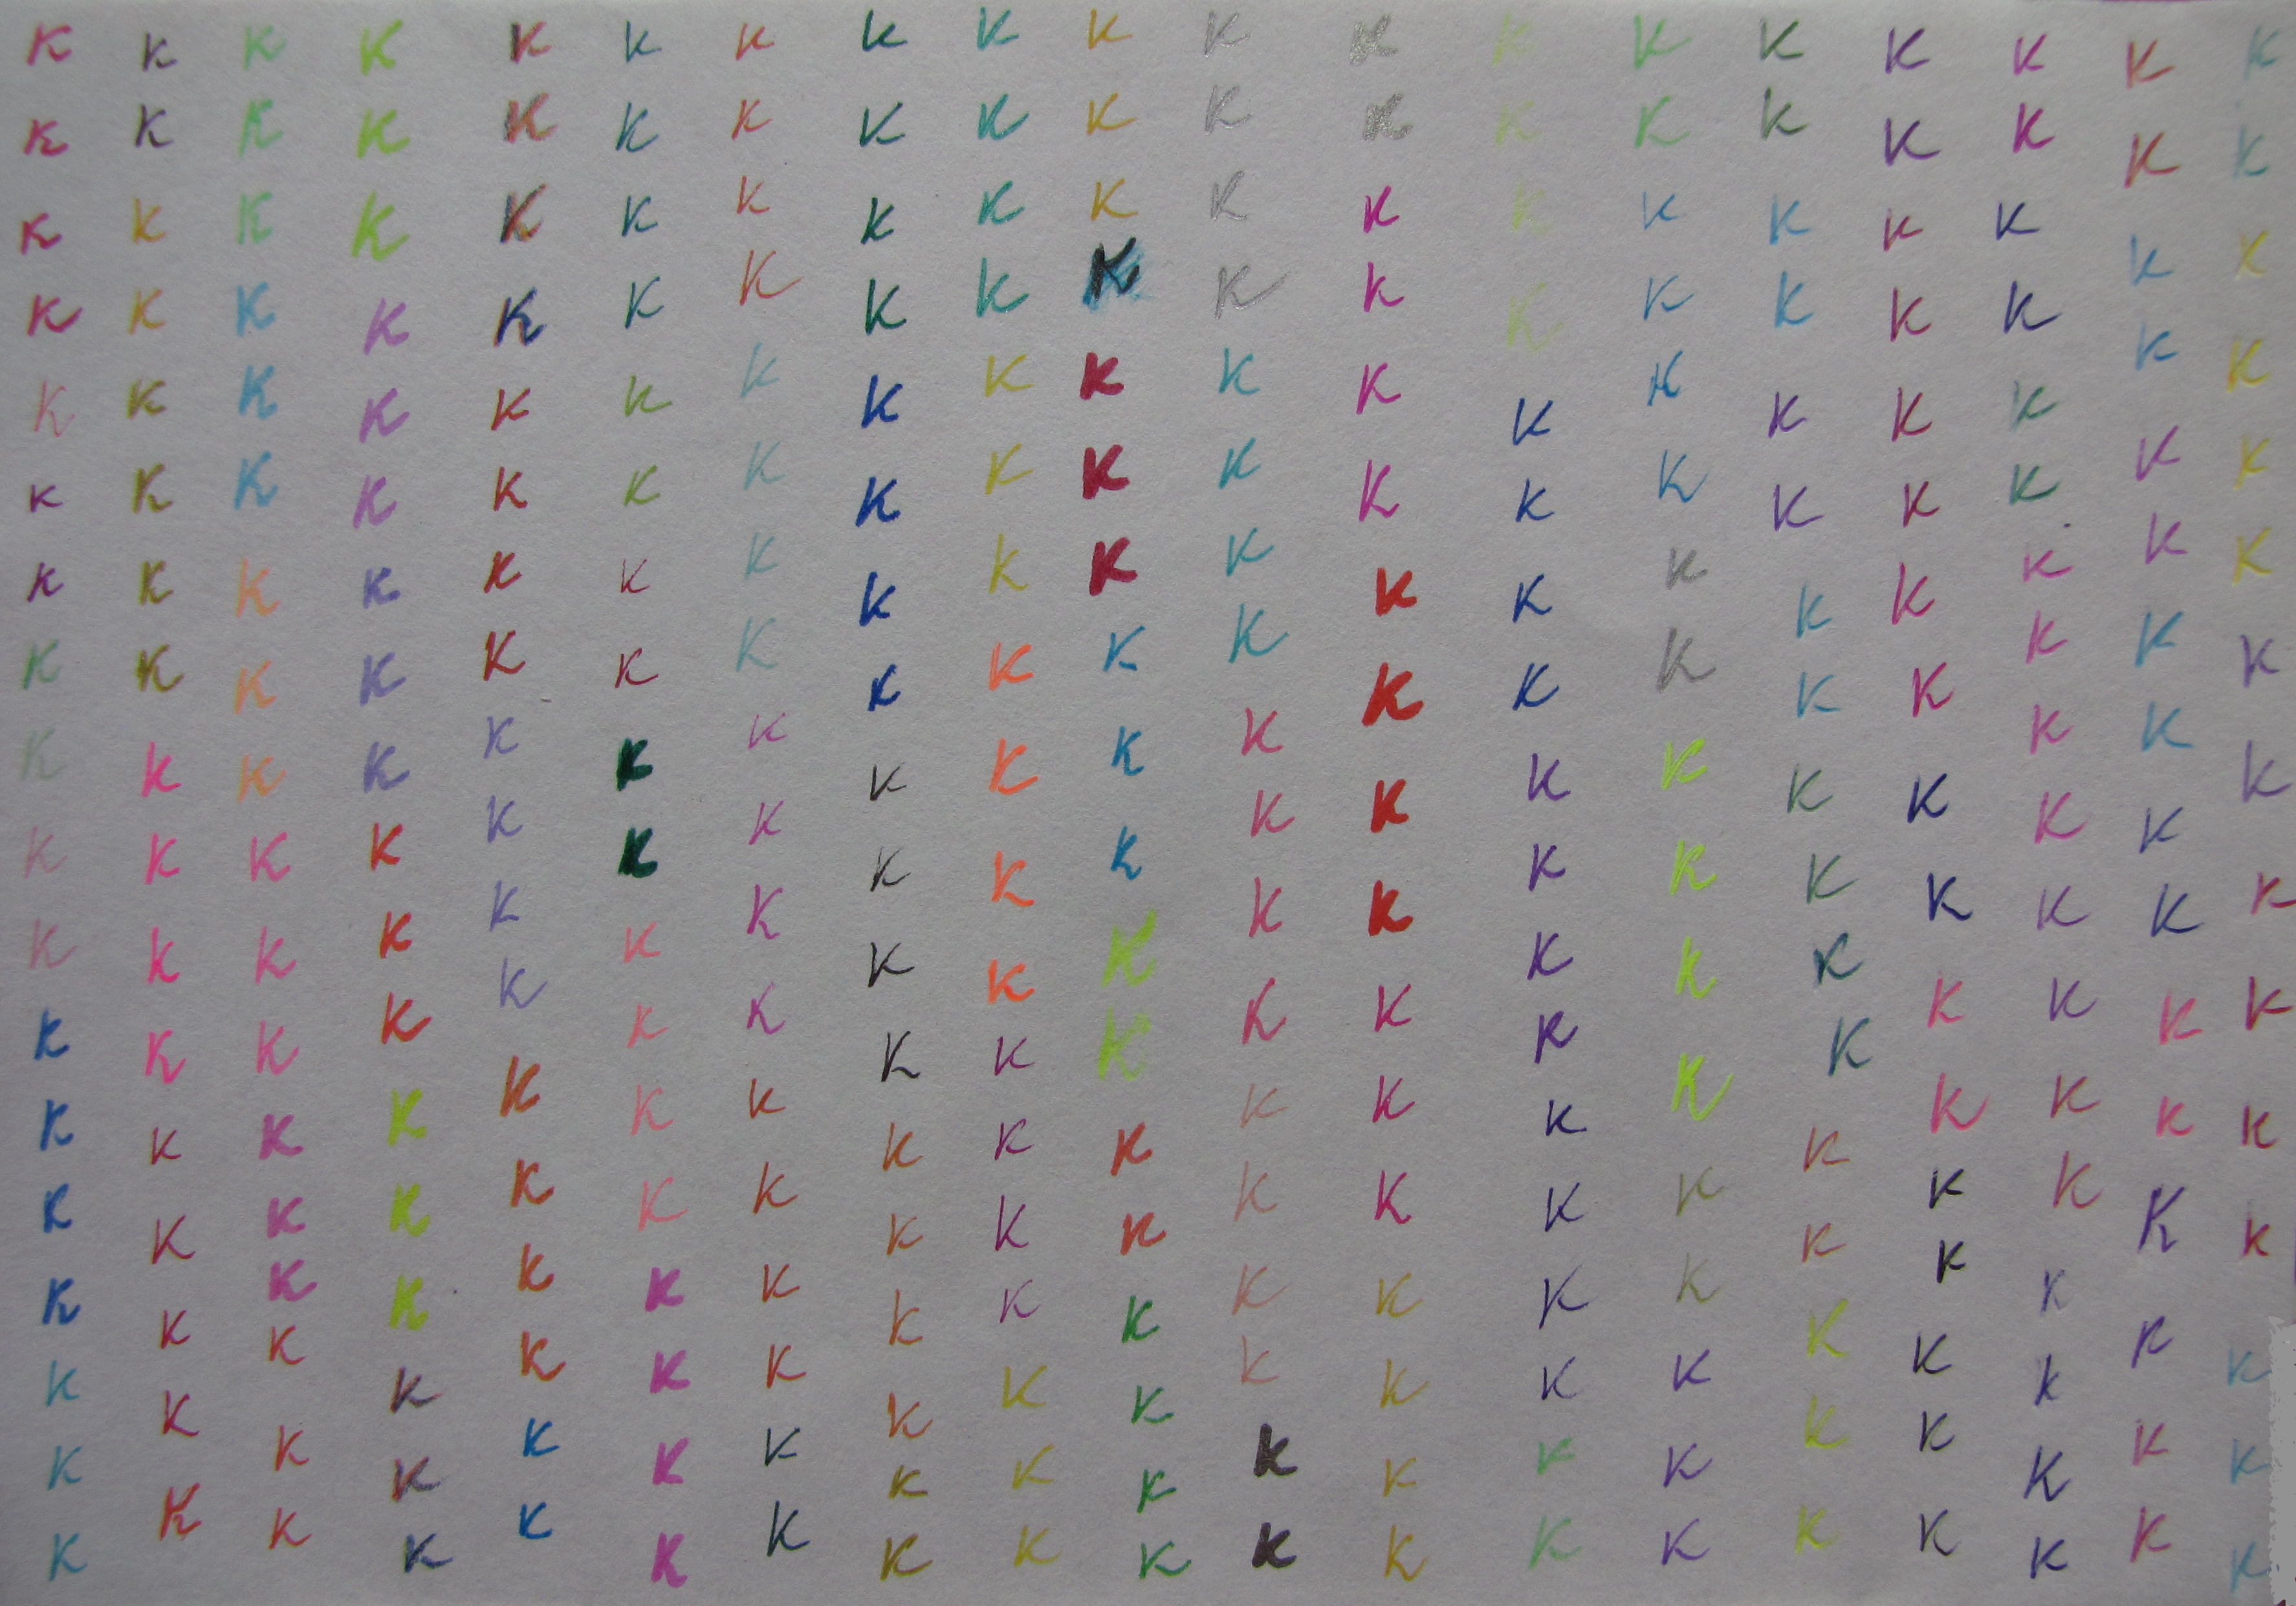 K K K K K K K K K K K K K K K K K K K
K K K K K K K K K K K K K K K K K K K
K K K K K K K K K K K K K K K K K K K
K K K K K K K K K K K K K K K K K K K
K K K K K K K K K K K K K K K K K K K
K K K K K K K K K K K K K K K K K K K
K K K K K K K K K K K K K K K K K K K
K K K K K K K K K K K K K K K K K K K
K K K K K K K K K K K K K K K K K K K
K K K K K K K K K K K K K K K K K K K
K K K K K K K K K K K K K K K K K K K
K K K K K K K K K K K K K K K K K K K
K K K K K K K K K K K K K K K K K K K
K K K K K K K K K K K K K K K K K K K
K K K K K K K K K K K K K K K K K K K
K K K K K K K K K K K K K K K K K K
K K K K K K K K K K K K K K K K K
K K K K K K K K K K K K K